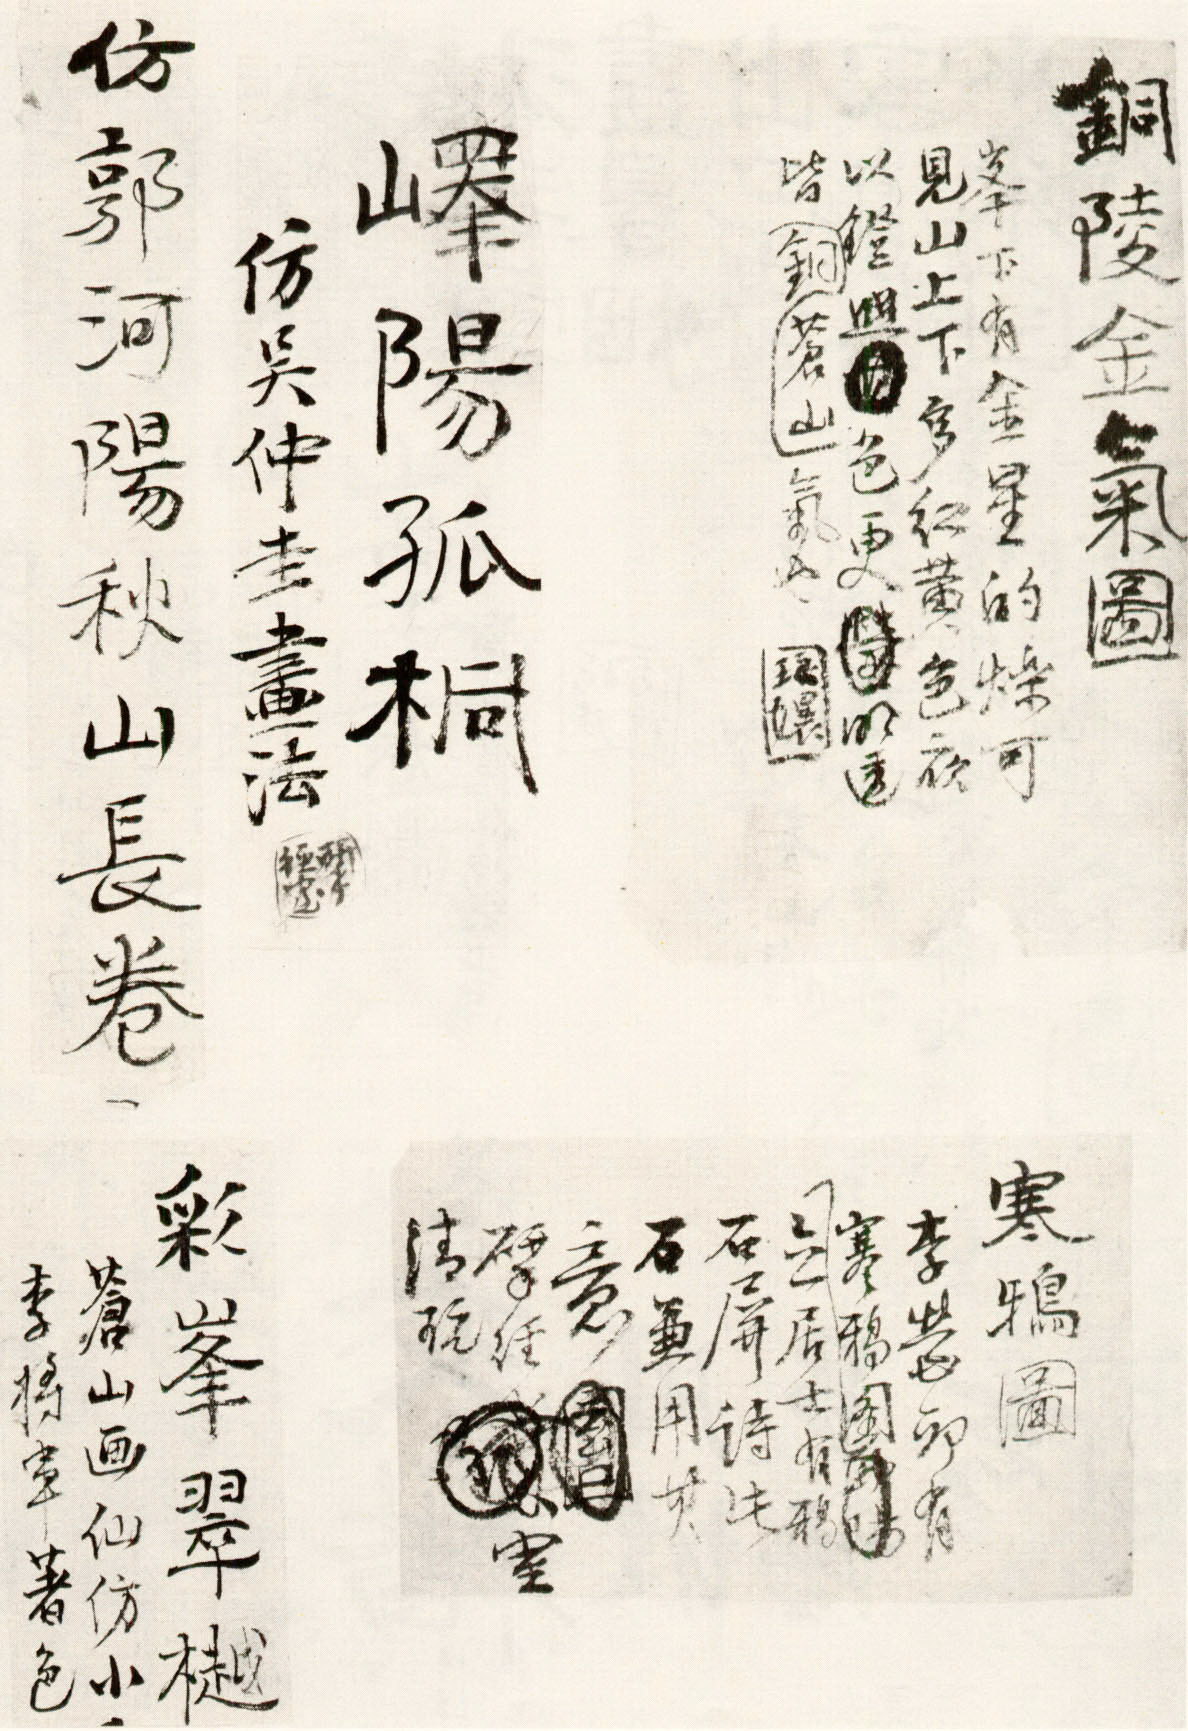 銅陵金氣圖
峯下有金星的爍可
見山上下多紅黃色夜
以鐙照色更明透
皆銅蒼山氣也
嶧陽孤桐
仿吳仲圭畫法
仿郭河陽秋山長卷
寒鴉圖
李營邱有
寒鴉圖
居士有鴉
石屏詩此
石兼用其
意
研經室
清玩
彩峯翠樾
蒼山画仙仿小
李將軍著色